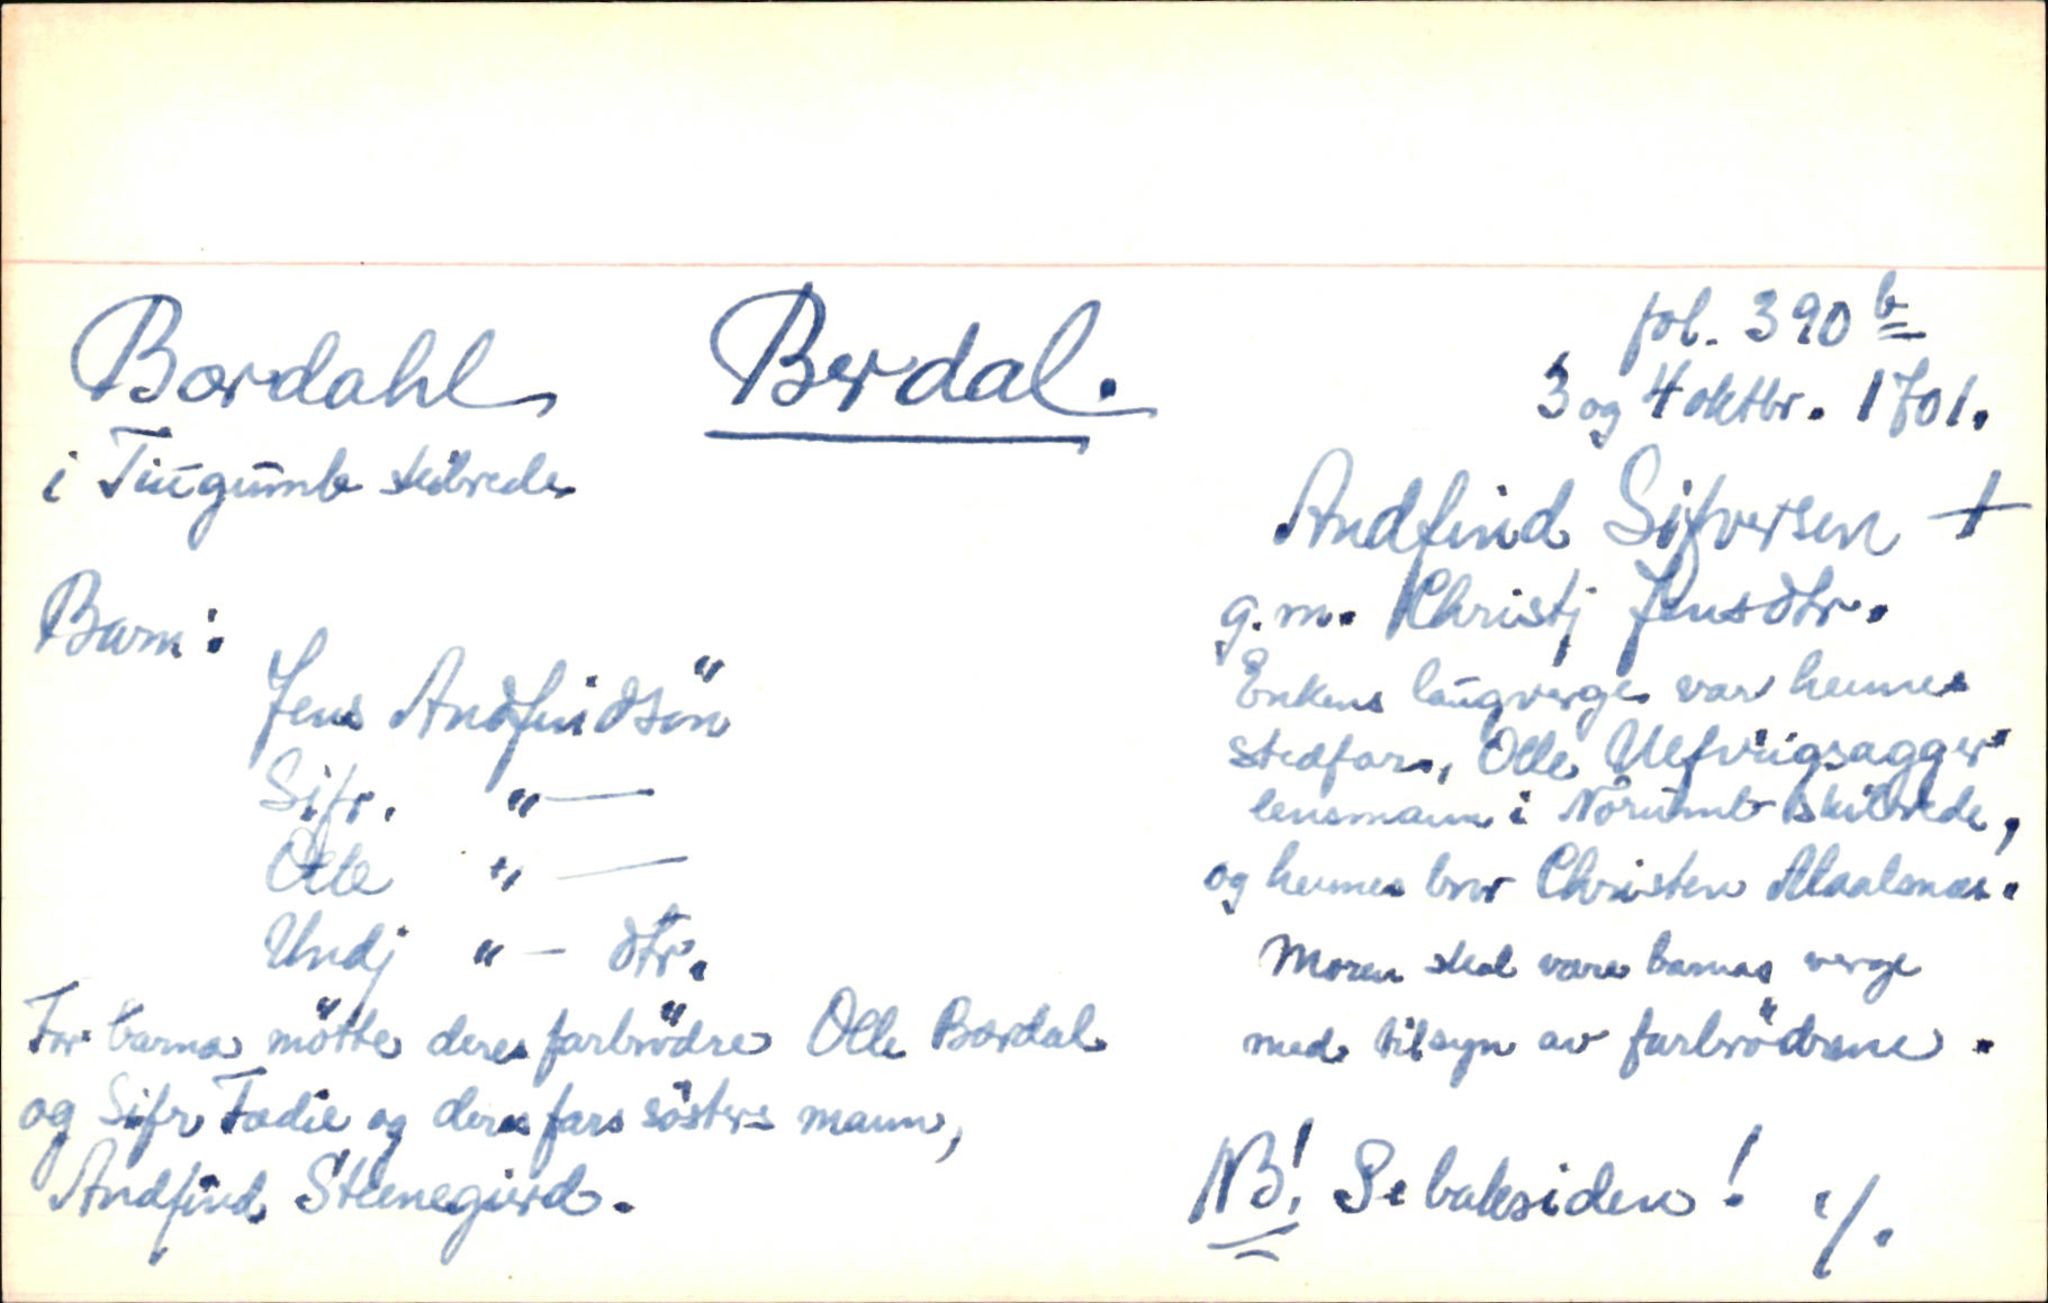 Bordahl Berdal.
i Tiugumb skibrede
fol. 390 b
3 og 4 oktbr. 1701.
Andfind Sifversen +
g.m. Christj Jensdtr.
Enkens laugverge var hennes
stedfar, Olle Uefvrigsagger
lensmann i Nörumb skibrede,
og hennes bror Christen Maalsnæs.
Moren skal være barnas verge
med tilsyn av farbrödrene.
NB! Se baksiden! ./.
Barn:
Jens Andfindsön
Sifr. " —
Olle " —
Undj " — dtr.
For barna mötte deres farbrödre Olle Bordal
og Sifr Fædie og deres fars sösters mann,
Andfind Steenegierd.